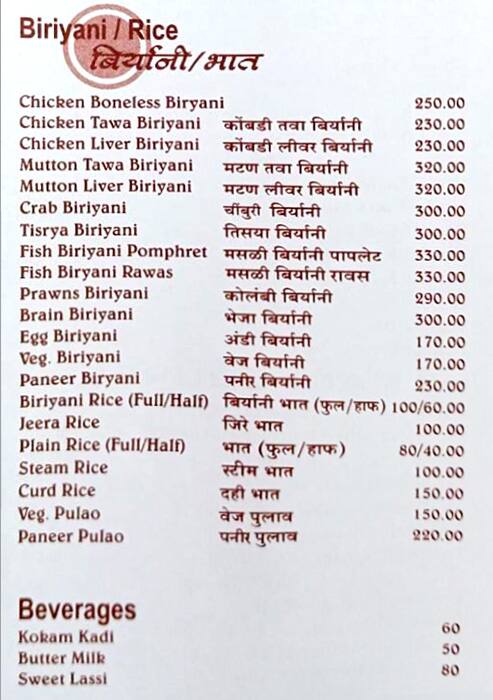 Biriyani / Rice
बिर्यानी/भात
Chicken Boneless Biryani 250.00
Chicken Tawa Biriyani कोंबडी तवा बिर्यानी 230.00
Chicken Liver Biriyani कोंबडी लीवर बिर्यानी 230.00
Mutton Tawa Biriyani मटण तवा बिर्यानी 320.00
Mutton Liver Biriyani मटण लीवर बिर्यानी 320.00
Crab Biriyani चींबुरी बिर्यानी 300.00
Tisrya Biriyani तिसर्‍या बिर्यानी 300.00
Fish Biriyani Pomphret मसळी बिर्यानी पापलेट 330.00
Fish Biryani Rawas मसळी बिर्यानी रावस 330.00
Prawns Biriyani कोलंबी बिर्यानी 290.00
Brain Biriyani भेजा बिर्यानी 300.00
Egg Biriyani अंडी बिर्यानी 170.00
Veg. Biriyani वेज बिर्यानी 170.00
Paneer Biryani पनीर बिर्यानी 230.00
Biriyani Rice (Full/Half) बिर्यानी भात (फुल/हाफ) 100/60.00
Jeera Rice जिरे भात 100.00
Plain Rice (Full/Half) भात (फुल/हाफ) 80/40.00
Steam Rice स्टीम भात 100.00
Curd Rice दही भात 150.00
Veg. Pulao वेज पुलाव 150.00
Paneer Pulao पनीर पुलाव 220.00
Beverages
Kokam Kadi 60
Butter Milk 50
Sweet Lassi 80